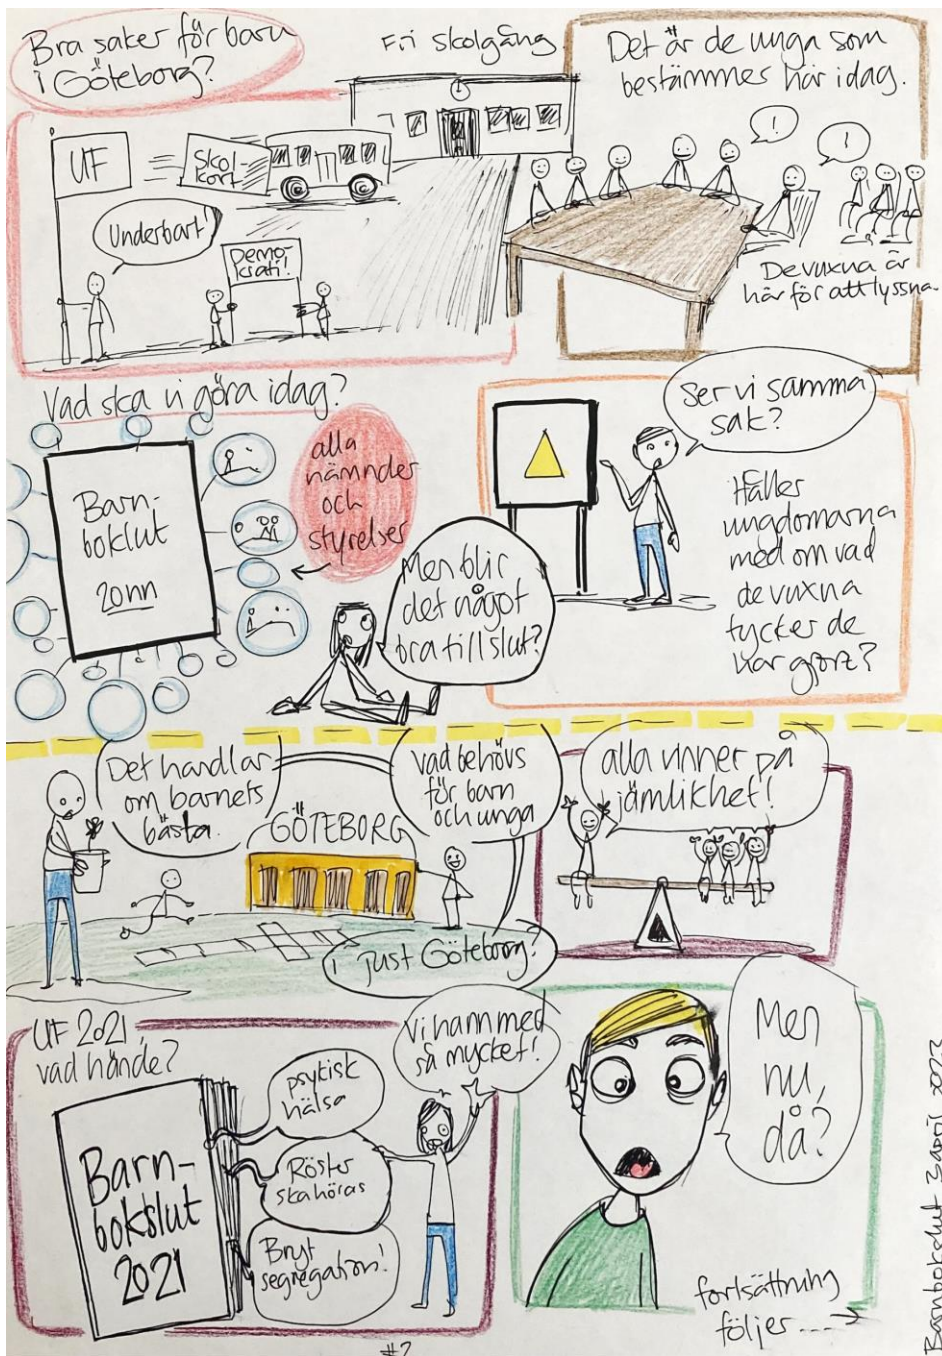 Bra saker för barn
i Göteborg?
Fri skolgång
UF
Skol-
kort
Underbart!
Demo-
krati!
Det är de unga som
bestämmer här idag.
!
!
De vuxna är
här för att lyssna.
Vad ska vi göra idag?
Barn-
boklut
20nn
alla
nämnder
och
styrelser
Men blir
det något
bra till slut?
Ser vi samma
sak?
Håller
ungdomarna
med om vad
de vuxna
tycker de
har gjort?
Det handlar
om barnets
bästa.
GÖTEBORG
vad behövs
för barn
och unga
i just Göteborg?
alla vinner på
jämlikhet!
UF 2021,
vad hände?
Barn-
bokslut
2021
psykisk
hälsa
Röster
ska höras
Bryt
segregation!
Vi hann med
så mycket!
Men
nu,
då?
fortsättning
följer....
#2
Barnbokslut 3 april